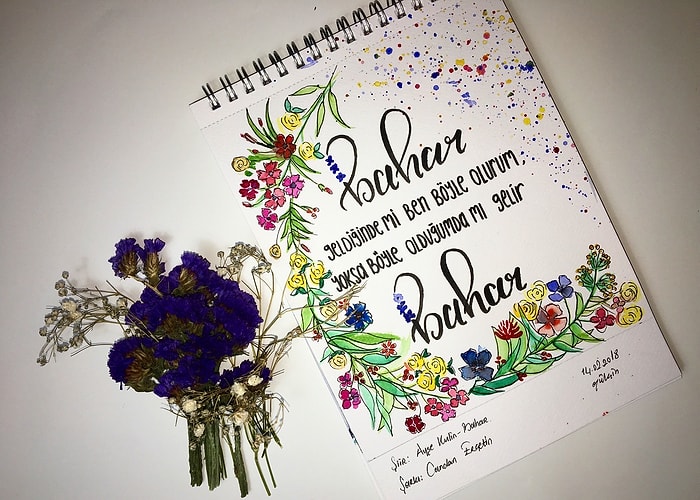 bahar
geldiğinde mi ben böyle olurum,
yoksa böyle olduğumda mı gelir
bahar
14.02.2018
Şiir: Ayşe Kulin-Bahar
Şarkı: Candan Erçetin